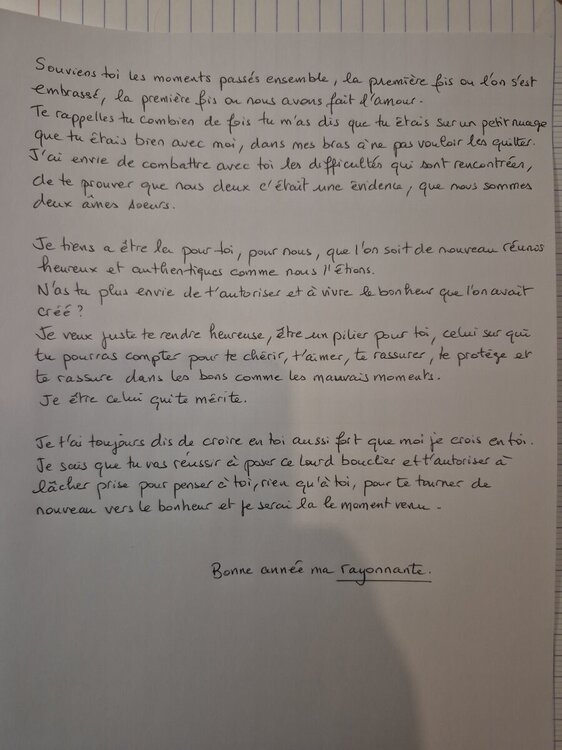 Souviens toi les moments passés ensemble, la première fois ou l'on s'est
embrassé, la première fois ou nous avons fait l'amour.
Te rappelles tu combien de fois tu m'as dis que tu étais sur un petit nuage
que tu étais bien avec moi, dans mes bras à ne pas vouloir les quitter.
J'ai envie de combattre avec toi les difficultés qui sont rencontrées,
de te prouver que nous deux c'était une évidence, que nous sommes
deux âmes soeurs.
Je tiens a être la pour toi, pour nous, que l'on soit de nouveau réunis
heureux et authentiques comme nous l'étions.
N'as tu plus envie de t'autoriser et à vivre le bonheur que l'on avait
créé ?
Je veux juste te rendre heureuse, être un pilier pour toi, celui sur qui
tu pourras compter pour te chérir, t'aimer, te rassurer, te protège et
te rassure dans les bons comme les mauvais moments.
Je être celui qui te mérite.
Je t'ai toujours dis de croire en toi aussi fort que moi je crois en toi.
Je sais que tu vas réussir à poser ce lourd bouclier et t'autoriser à
lâcher prise pour penser à toi, rien qu'à toi, pour te tourner de
nouveau vers le bonheur et je serai la le moment venu.
Bonne année ma rayonnante.